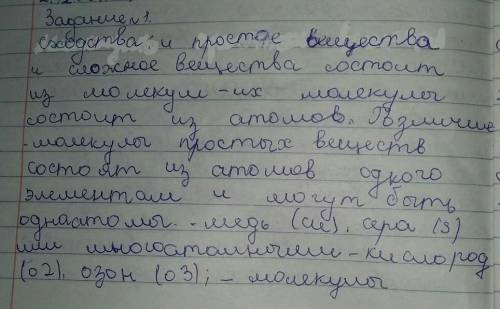 Задание №1.
сходства и простое вещества
и сложное вещества состоит
из молекул - их молекулы
состоит из атомов. Различие
- молекулы простых веществ
состоят из атомов одкого
элементам и могут быть
однаатомы - медь (си), сера (s)
или многоатомными - кислород
(о2), озон (о3); - молекулы